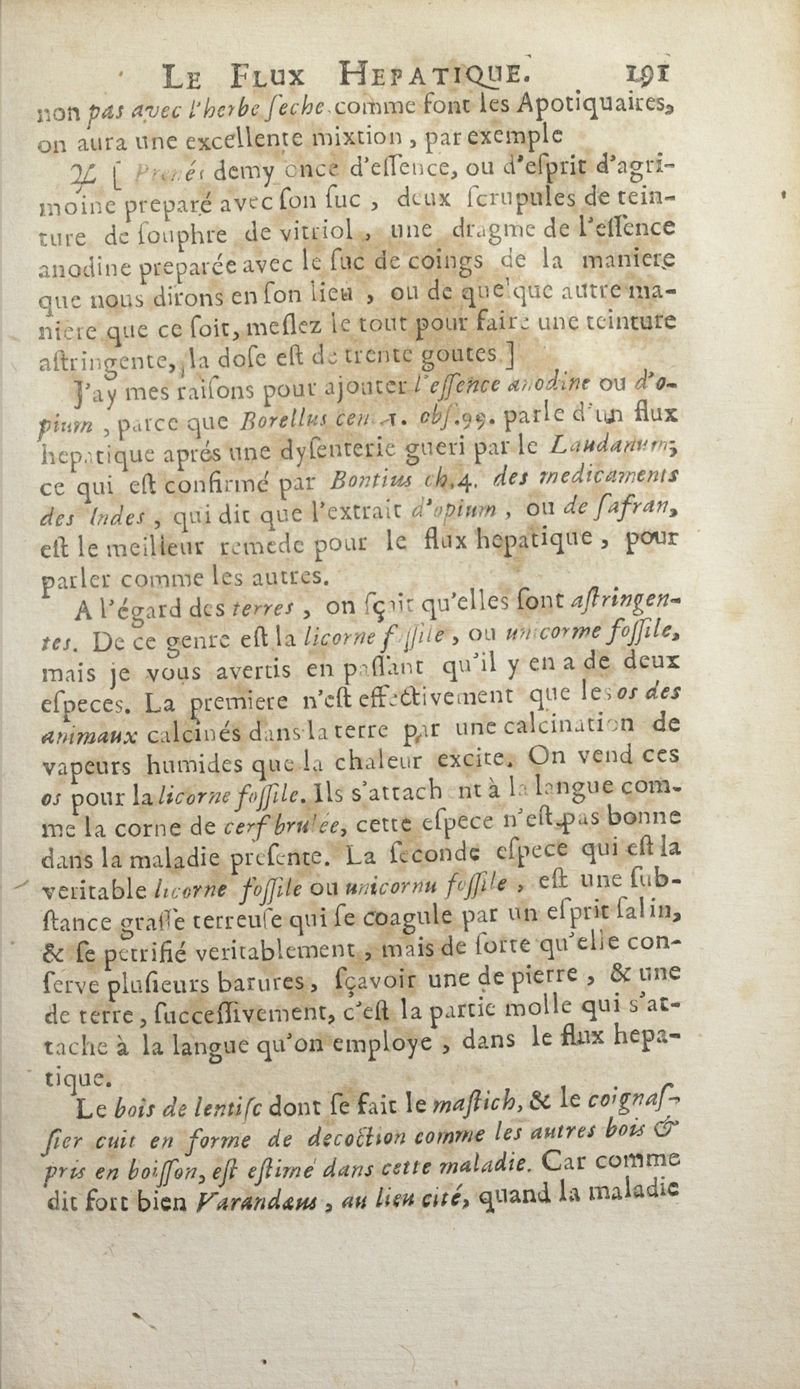 LE FLUX HEPATIQUE. 191
non pas avec l'herbe ſeche comme font les Apotiquaires,
on aura une excellente mixtion, par exemple
♃ [ Prenés demy once d'eſſence, ou d'eſprit d'agri-
moine preparé avec ſon ſuc, deux ſcrupules de tein-
ture de ſouphre de vitriol, une dragme de l'eſſence
anodine preparée avec le ſuc de coings de la maniere
que nous dirons en ſon lieu, ou de quelque autre ma-
niere que ce ſoit, meſlez le tout pour faire une teinture
aſtringente, la doſe eſt de trente goutes. ]
J'ay mes raiſons pour ajouter l'eſſence anodine ou d'o-
pium, parce que Borellus cen. 1. obſ. 99. parle d'un flux
hepatique aprés une dyſenterie gueri par le Laudanum;
ce qui eſt confirmé par Bontius ch. 4. des medicaments
des Indes, qui dit que l'extrait d'opium, ou de ſafran,
eſt le meilleur remede pour le flux hepatique, pour
parler comme les autres.
A l'égard des terres, on ſçait qu'elles ſont aſtringen-
tes. De ce genre eſt la licorne foſſile, ou unicorme foſſile,
mais je vous avertis en paſſant qu'il y en a de deux
eſpeces. La premiere n'eſt effectivement que les os des
animaux calcinés dans la terre par une calcination de
vapeurs humides que la chaleur excite. On vend ces
os pour la licorne foſſile. Ils s'attachent à la langue com-
me la corne de cerf brulée, cette eſpece n'eſt pas bonne
dans la maladie preſente. La ſeconde eſpece qui eſt la
veritable licorne foſſile ou unicornu foſſile, eſt une ſub-
ſtance graſſe terreuſe qui ſe coagule par un eſprit ſalin,
& ſe petrifié veritablement, mais de ſorte qu'elle con-
ſerve pluſieurs barures, ſçavoir une de pierre, & une
de terre, ſucceſſivement, c'eſt la partie molle qui s'at-
tache à la langue qu'on employe, dans le flux hepa-
tique.
Le bois de lentiſc dont ſe fait le maſtich, & le coignaſ-
ſier cuit en forme de decoction comme les autres bois &
pris en boiſſon, eſt eſtimé dans cette maladie. Car comme
dit fort bien Varandæus, au lieu cité, quand la maladie